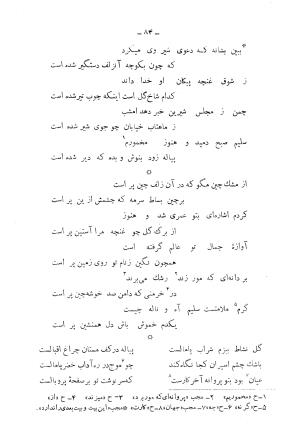 ـ ۸۴ ـ
*ببین بشانه که دعوی شیر وی میکرد
که چون بکوچه آن زلف دستگیر شده است
ز شوق غنچه پیکان او خدا داند
کدام شاخ گل است اینکه چوب تیر شده است
چمن ز مجلس شیرین خبر دهد امشب
ز ماهتاب خیابان چو جوی شیر شده است
سلیم صبح دمید و هنوز مخمورم۱
پیاله زود بنوش و بده که دیر شده است
○
از مشك چین مگو که در آن زلف چین پر است
برچین بساط سرمه که چشمش از ین پر است
کردم اشاره‌ای بتو عمری شد و هنوز
از برگ گل چو غنچه مرا آستین پر است
آوازهٔ جمال تو عالم گرفته است
همچون نگین زنام تو روی زمین پر است
بر دانه‌ای که مور زند۲ رشك می‌برند۳
در۴ خرمنی که دامن صد خوشه‌چین پر است
گرم۵ ملامت سلیم آه و ناله چیست
یکدم خموش باش دل همنشین پر است
○
گل نشاط بزم شراب پامالست
پیاله درکف مستان چراغ اقبالست
باشك چشم اسیران کجا
چو موج در ره آداب خضر پامالست
عیان۷ بود بتو پروانه آخر کارت۸
کسر نوشت تو برصفحهٔ پر و بالست
۱ـ ح «مخموریم» ۲ـ مجب «پروانه‌ای که مور برد» ۳ـ ح «میزند» ۴ـ ح «از»